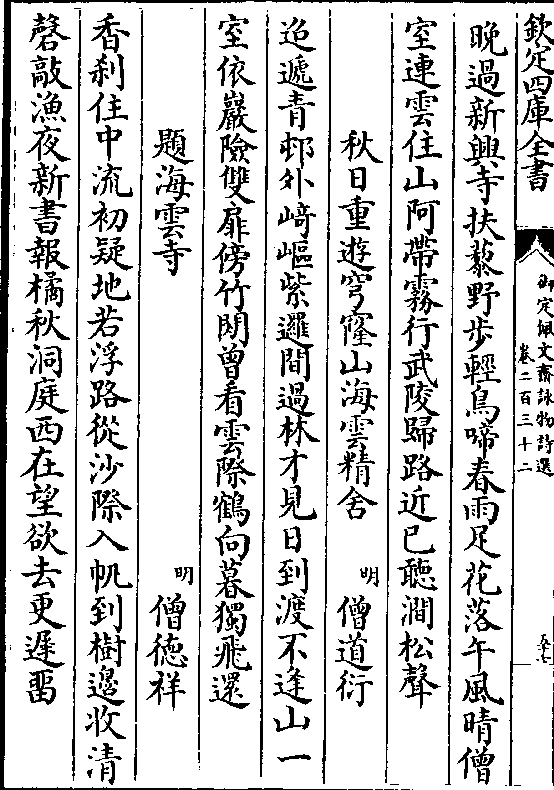 欽定四庫全書
御定佩文齋詠物詩選
卷二百三十二
晚過新興寺扶藜野步輕鳥啼春雨足花落午風晴僧
室連雲住山阿帶霧行武陵歸路近已聽澗松聲
秋日重遊穹窿山海雲精舍 明 僧道衍
迢遞青邨外﨑嶇紫邏間過林才見日到渡不逢山一
室依巖險雙扉傍竹閒曾看雲際鶴向暮獨飛還
題海雲寺 明 僧德祥
香剎住中流初疑地若浮路從沙際入帆到樹邊收清
磬敲漁夜新書報橘秋洞庭西在望欲去更遲畱